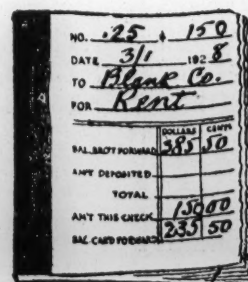 NO. .25 $ 150
DATE 3/1 1928
TO Blank Co.
FOR Rent
DOLLARS CENTS
BAL. BRO'T FORWARD 385 50
AM'T DEPOSITED
TOTAL
AM'T THIS CHECK 150 00
BAL. CAR'D FORWARD 235 50